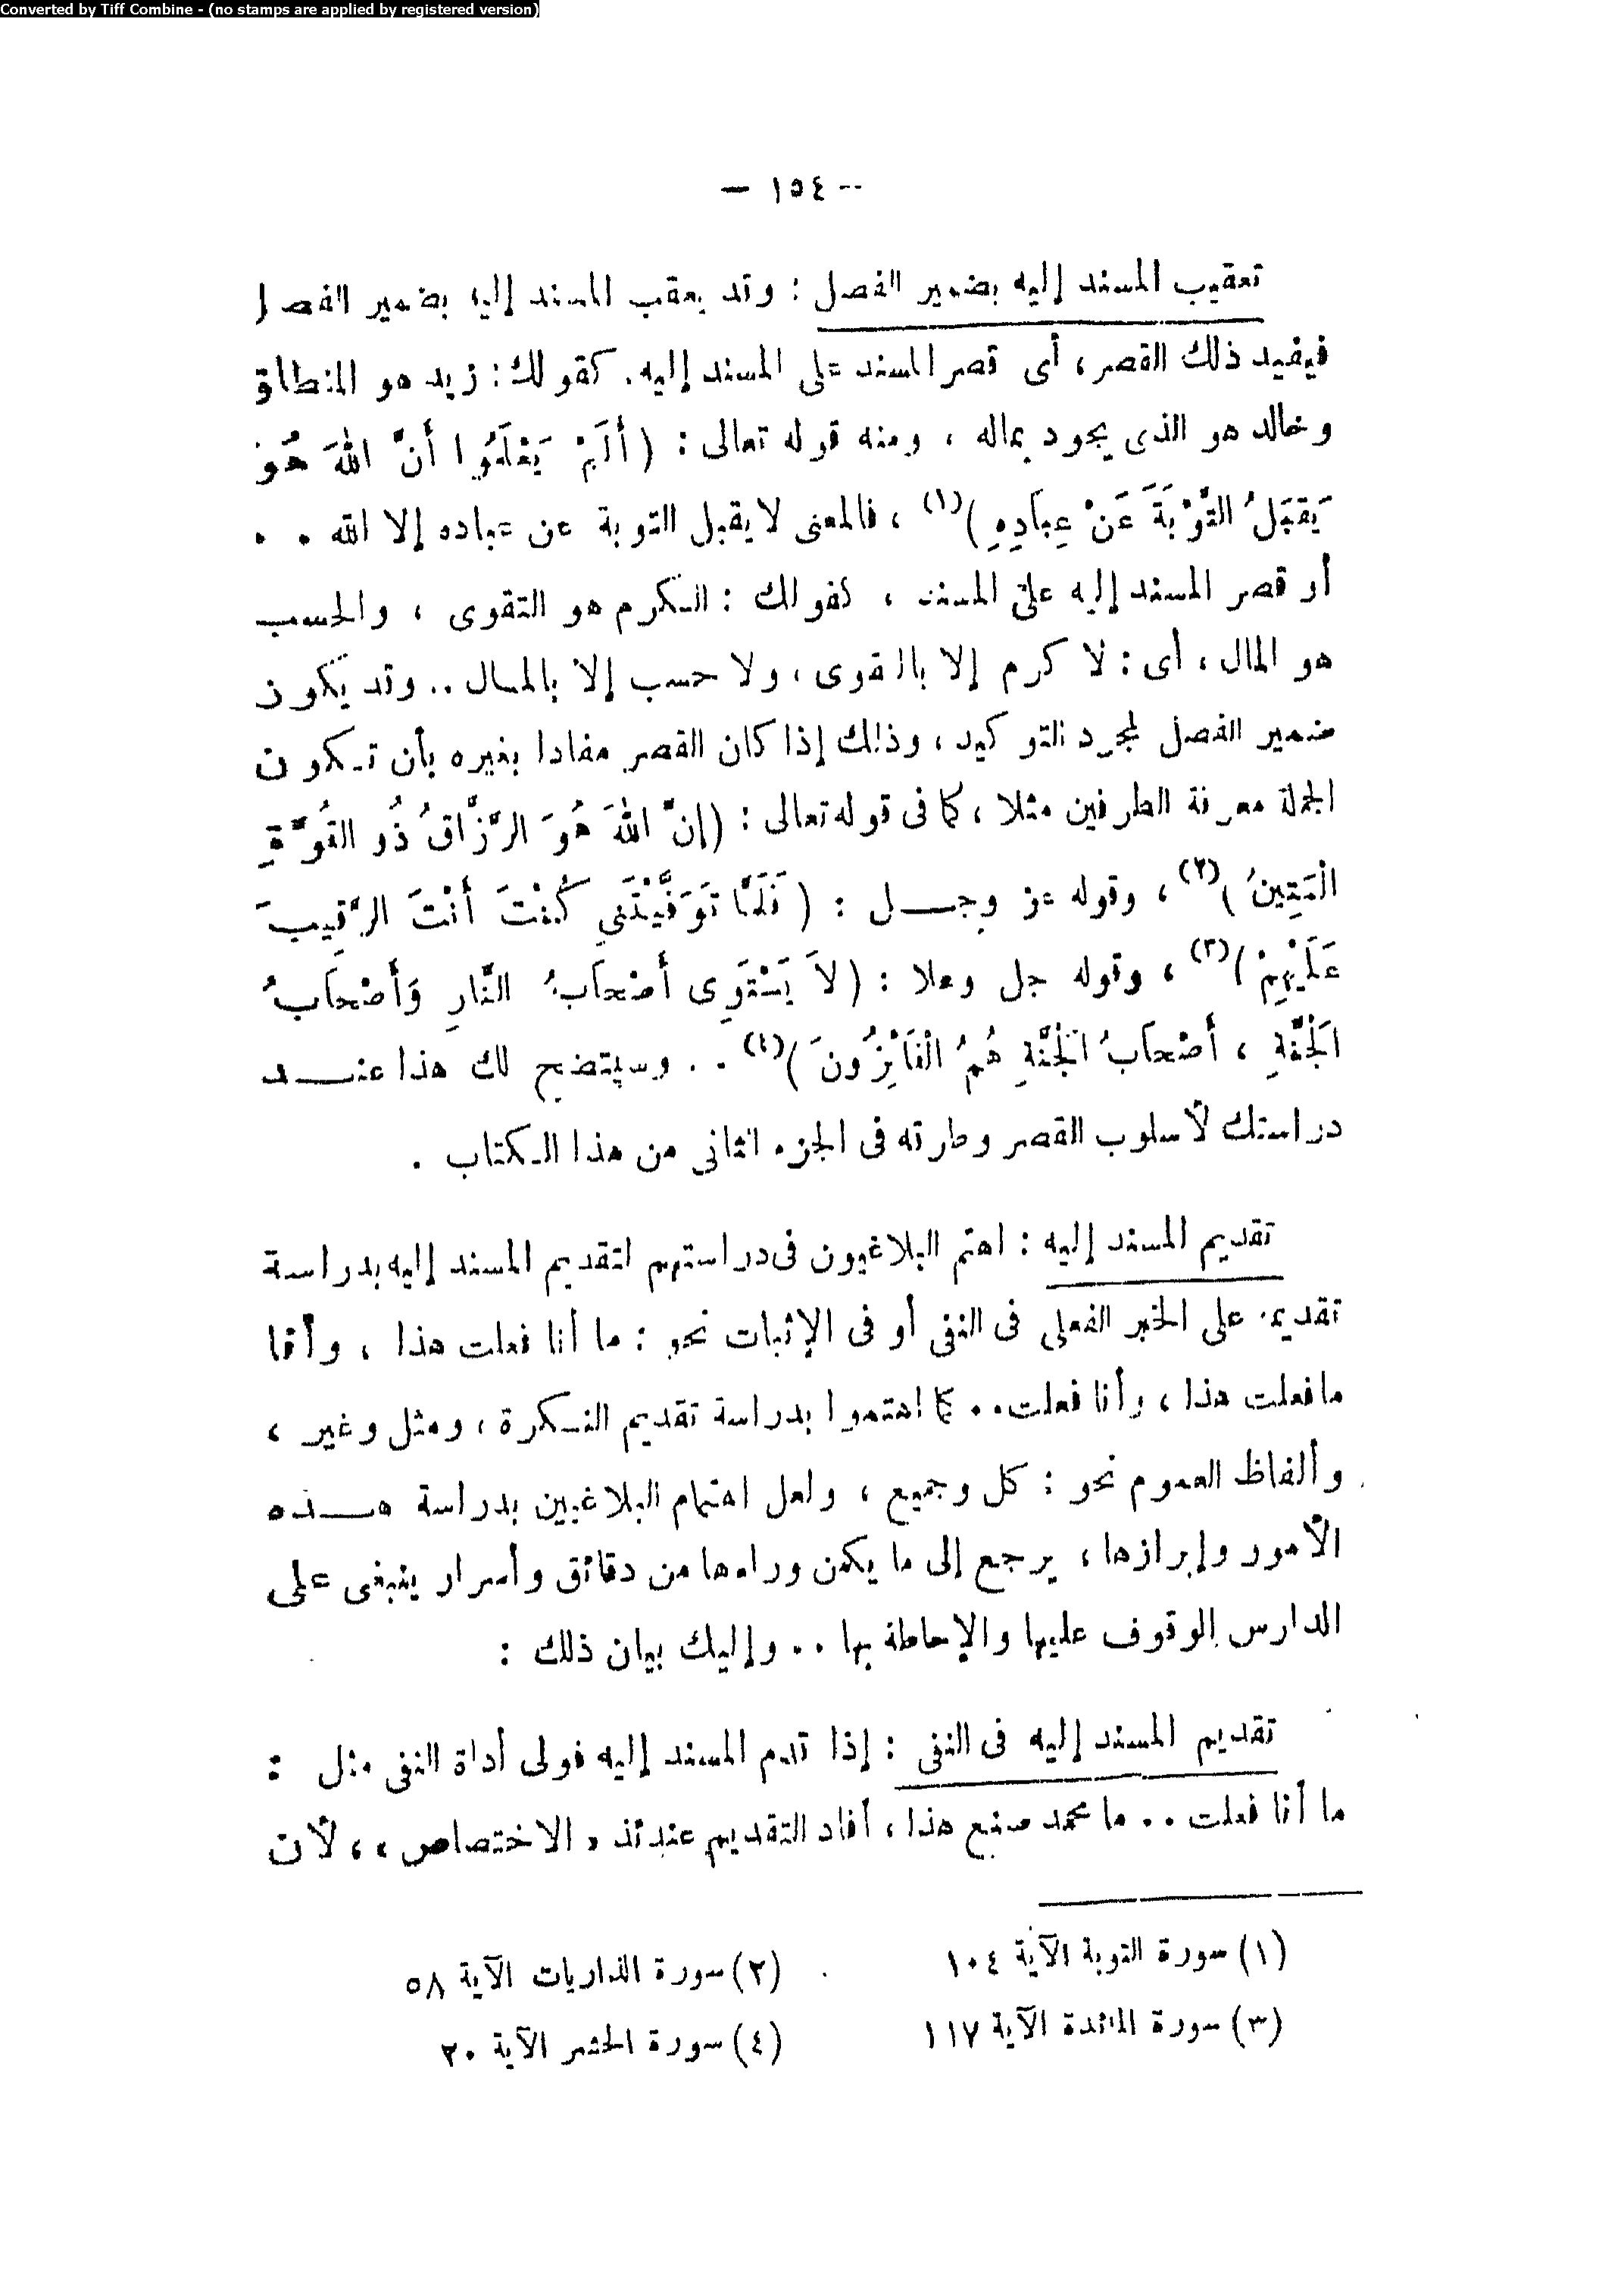 Converted by Tiff Combine - (no stamps are applied by registered version)
-- ١٥٤ —
تعقيب المسند إليه بضمير الفصل : وقد يعقب المسند إليه بضمير الفصل
فيفيد ذلك القصر ، أى قصر المسند على المسند إليه . كقولك : زيد هو المنطلق
وخالد هو الذى يجود بماله ، ومنه قوله تعالى : ( أَلَمْ يَعْلَمُوا أَنَّ اللهَ هُوَ
يَقْبَلُ التَّوْبَةَ عَنْ عِبَادِهِ )(١) ، فالمعنى لا يقبل التوبة عن عباده إلا الله . .
أو قصر المسند إليه على المسند ، كقولك : الكرم هو التقوى ، والحسب
هو المال ، أى : لا كرم إلا بالتقوى ، ولا حسب إلا بالمال .. وقد يكون
ضمير الفصل لمجرد التوكيد ، وذلك إذا كان القصر مفادا بغيره بأن تكون
الجملة معرفة الطرفين مثلا ، كما فى قوله تعالى : (إنَّ اللهَ هُوَ الرَّزَّاقُ ذُو القُوَّةِ
الْمَتِينُ )(٢) ، وقوله عز وجل : ( فَلَمَّا تَوَفَّيْتَنِي كُنْتَ أَنْتَ الرَّقِيبَ
عَلَيْهِمْ )(٣) ، وقوله جل وعلا : ( لاَ يَسْتَوِى أَصْحاَبُ النَّارِ وَأَصْحاَبُ
الْجَنَّةِ ، أَصْحاَبُ الْجَنَّةِ هُمُ الْفَائِزُونَ )(٤) . . وسيتضح لك هذا عنـــد
دراستك لأسلوب القصر وطرقه فى الجزء الثانى من هذا الكتاب .
تقديم المسند إليه : اهتم البلاغيون فى دراستهم لتقديم المسند إليه بدراسة
تقديمه على الخبر الفعلى فى النفى أو فى الإثبات نحو : ما أنا فعلت هذا ، وأنا
ما فعلت هذا ، وأنا فعلت . . كما اهتموا بدراسة تقديم النكرة ، ومثل وغير ،
وألفاظ العموم نحو : كل وجميع ، ولعل اهتمام البلاغيين بدراسة هـــذه
الأمور وإبرازها ، يرجع إلى ما يكمن وراءها من دقائق وأسرار ينبغى على
الدارس الوقوف عليها والإحاطة بها . . وإليك بيان ذلك :
تقديم المسند إليه فى النفى : إذا تقدم المسند إليه فولى أداة النفى مثل :
ما أنا فعلت . . ما محمد صنع هذا ، أفاد التقديم عندئذ « الاختصاص » ، لأن
(١) سورة التوبة الآية ١٠٤
(٢) سورة الذاريات الآية ٥٨
(٣) سورة المائدة الآية ١١٧
(٤) سورة الحشر الآية ٢٠